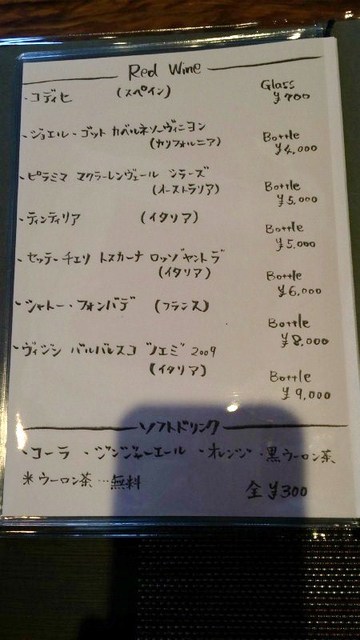 Red Wine
・コディヒ (スペイン) Glass ¥700
・ジョエル・ゴット カベルネソーヴィニヨン
(カリフォルニア) Bottle ¥4,000
・ピラミマ マクラーレンヴェール シラーズ
(オーストラリア) Bottle ¥5,000
・ティンティリア (イタリア) Bottle ¥5,000
・セッテ・チェリ トスカーナ ロッソ
(イタリア) Bottle ¥6,000
・シャトー・フォンバデ (フランス) Bottle ¥8,000
・ヴィジン バルバレスコ ノエミ 2009
(イタリア) Bottle ¥9,000
ソフトドリンク
・コーラ ・ジンジャーエール ・オレンジ ・黒ウーロン茶
※ウーロン茶…無料 全¥300